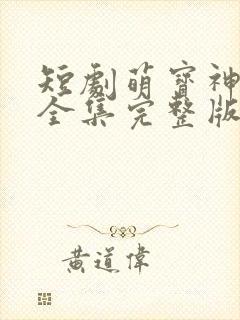 短劇萌寶神
全集完整版
黃道偉